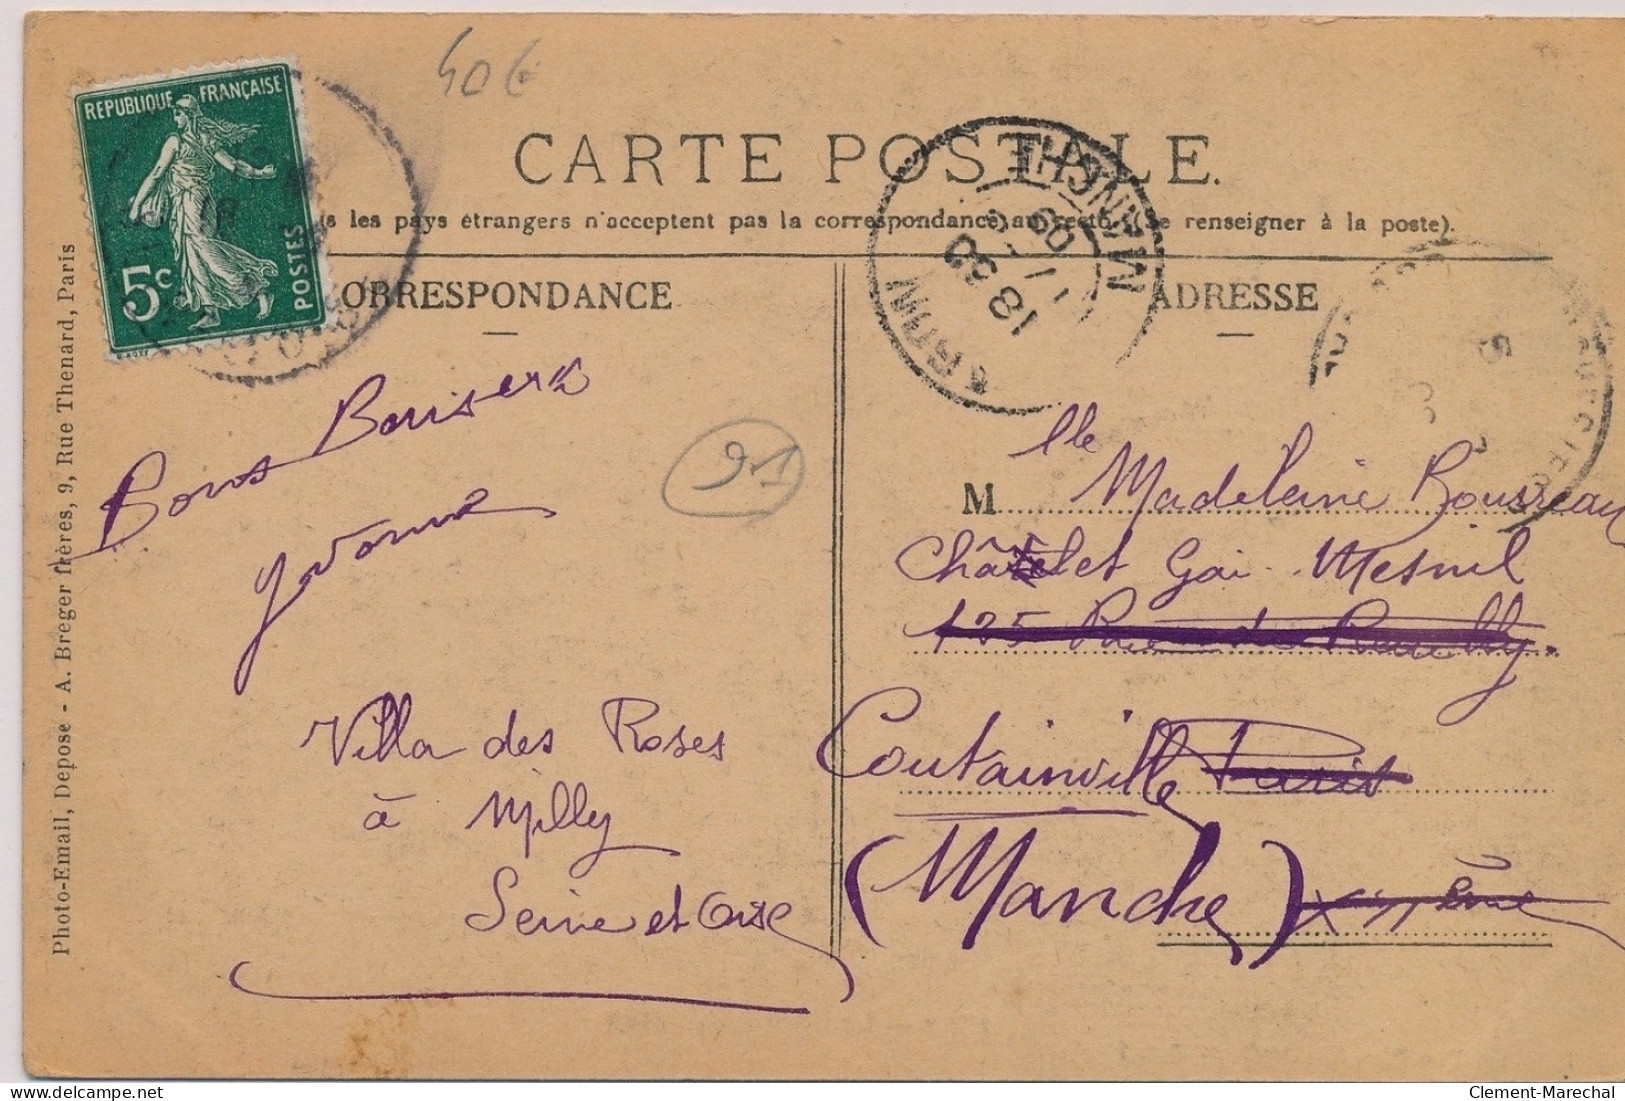 40€
REPUBLIQUE FRANÇAISE
5c
POSTES
CARTE POSTALE.
s les pays étrangers n'acceptent pas la correspondance au recto, se renseigner à la poste).
ORRESPONDANCE
ADRESSE
MANCHE
18 30
09
Bons Baisers
Yvonne
91
Villa des Roses
à Milly
Seine et Oise
M lle Madeleine Rousseau
Châtelet Gai-Mesnil
125 Rue de Reuilly.
Coutainville Paris
(Manche) XIIème
Photo-Email, Depose - A. Breger frères, 9, Rue Thenard, Paris
Clement-Marechal